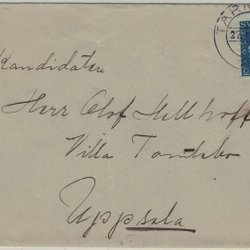 TÄRN
27
Kandidaten
Herr Olof Hellhoff
Villa Tomtebo
Uppsala